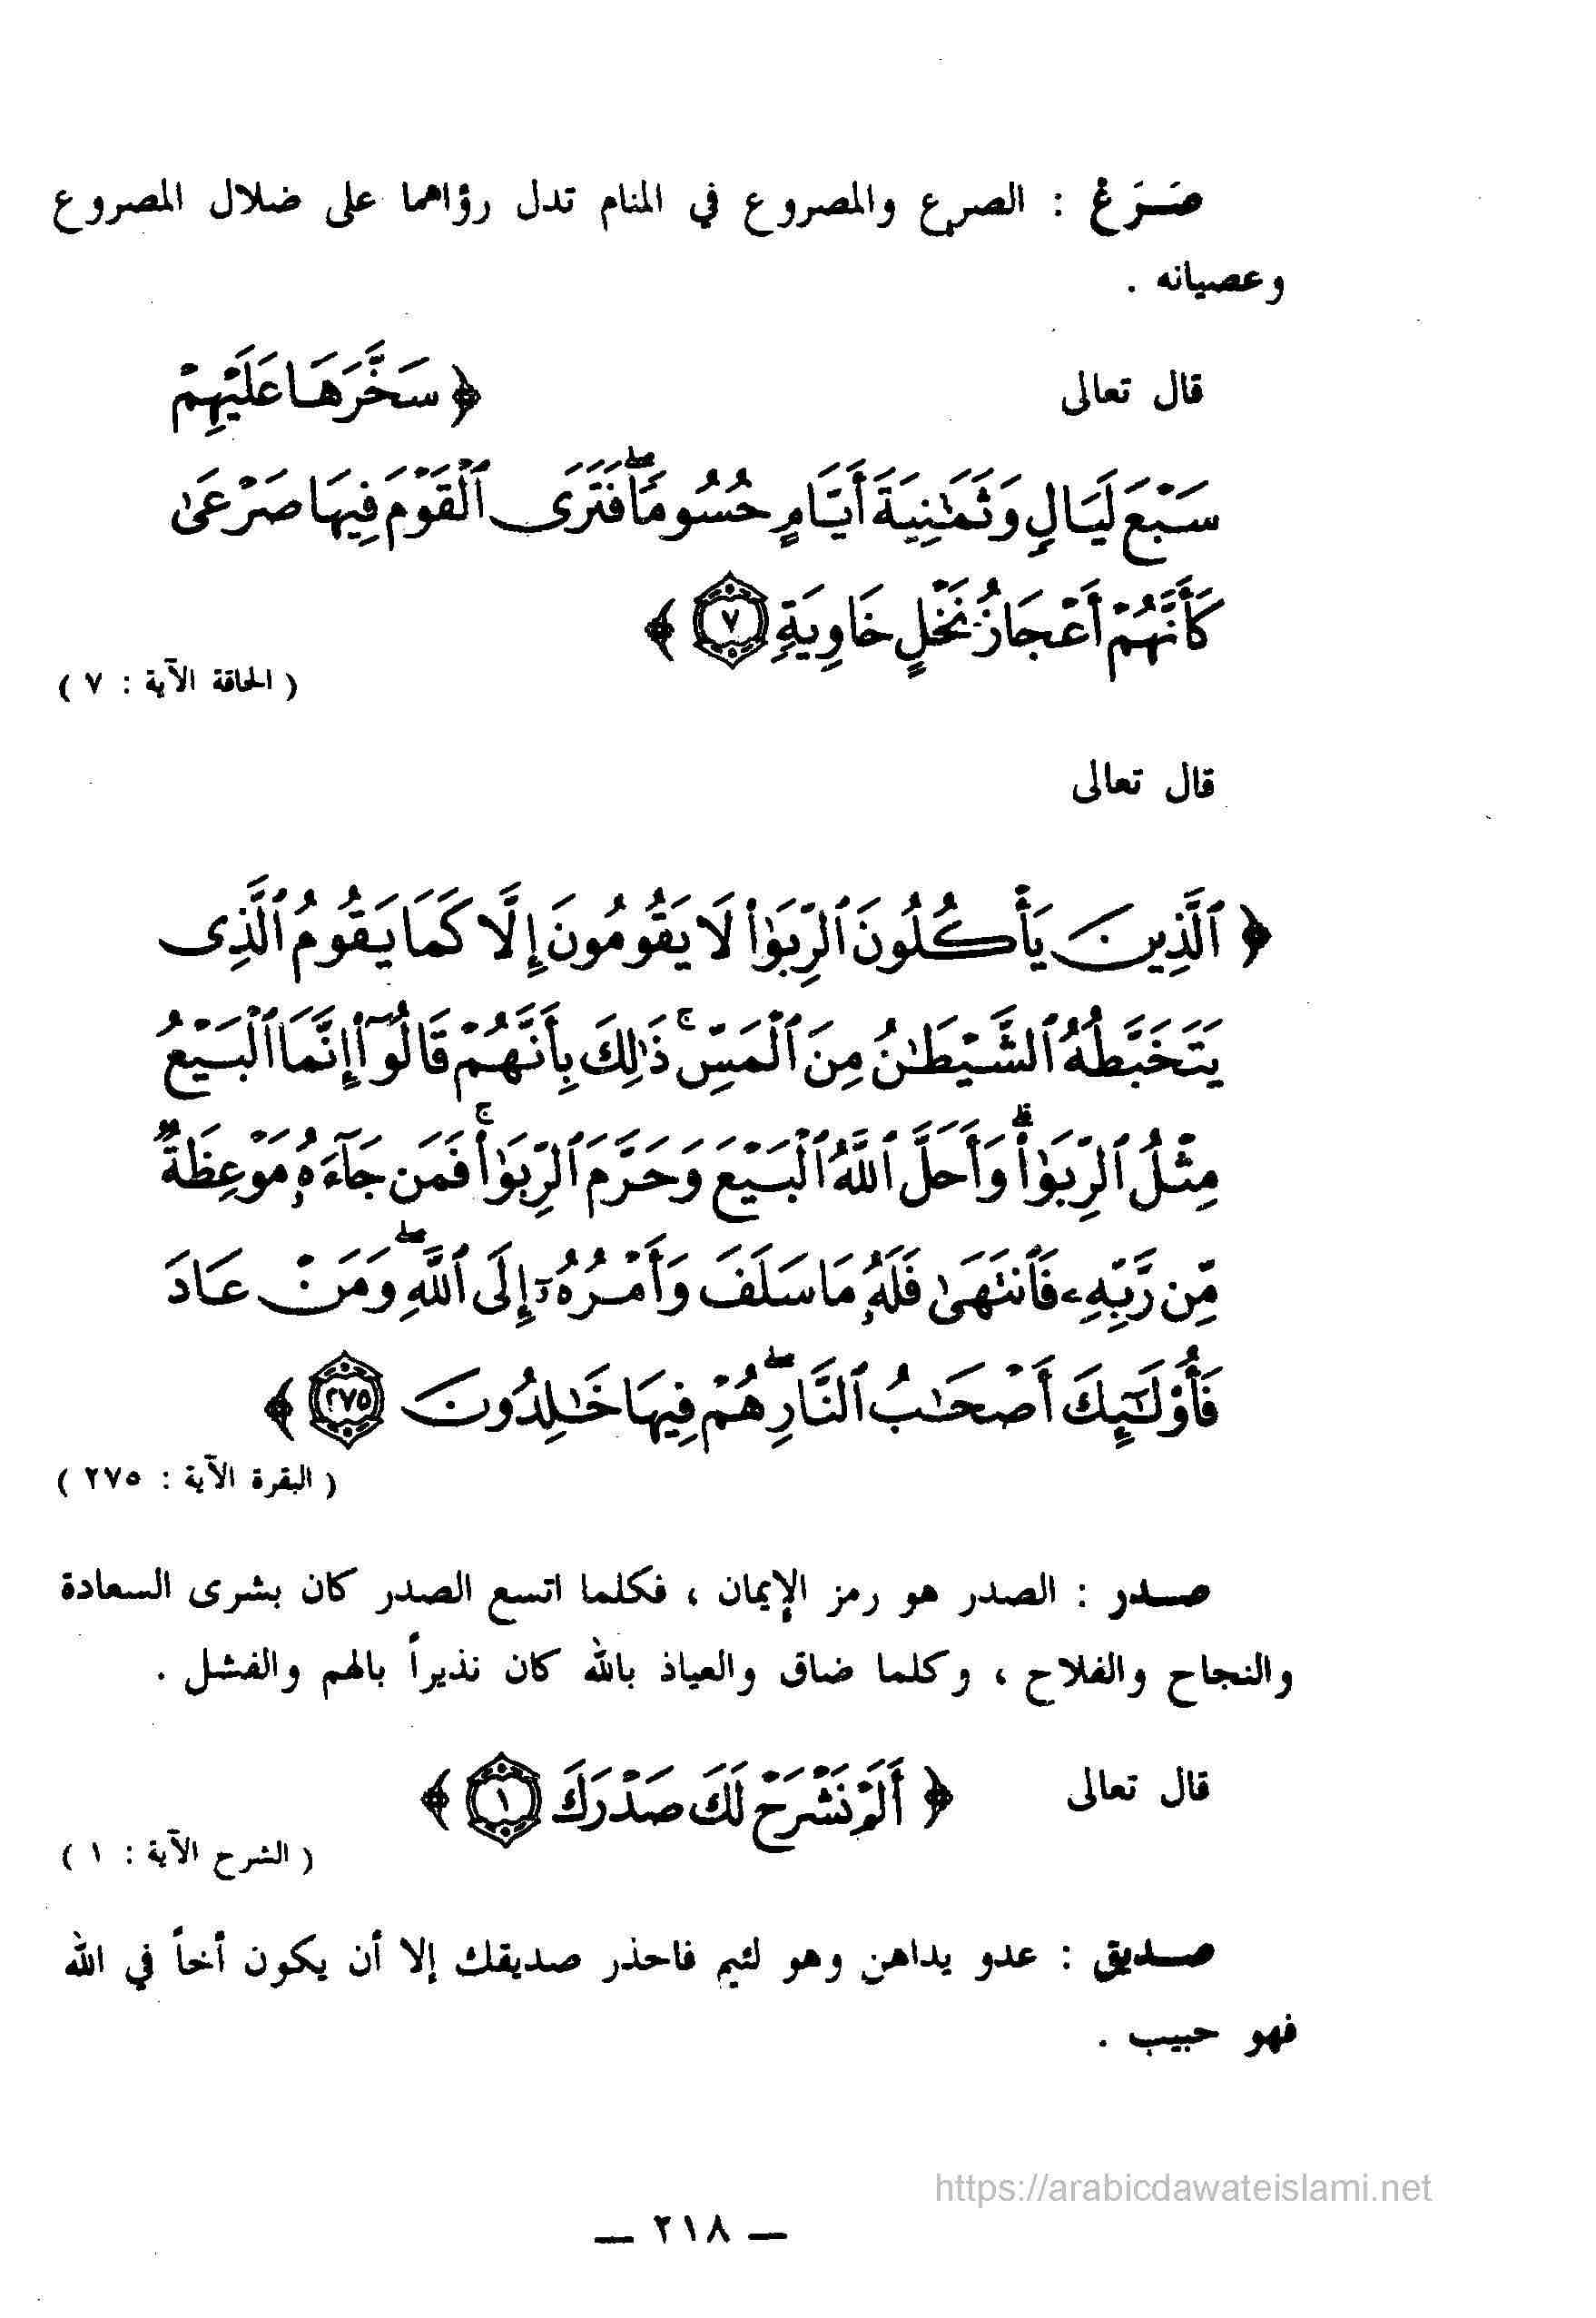 صَرَعْ : الصرع والمصروع في المنام تدل رؤاهما على ضلال المصروع
وعصيانه .
قال تعالى ﴿ سَخَّرَهَا عَلَيْهِمْ
سَبْعَ لَيَالٍ وَثَمَٰنِيَةَ أَيَّامٍ حُسُومًاۖ فَتَرَى ٱلْقَوْمَ فِيهَا صَرْعَىٰ
كَأَنَّهُمْ أَعْجَازُ نَخْلٍ خَاوِيَةٍ ٧ ﴾
( الحاقة الآية : ٧ )
قال تعالى
﴿ ٱلَّذِينَ يَأْكُلُونَ ٱلرِّبَوٰا۟ لَا يَقُومُونَ إِلَّا كَمَا يَقُومُ ٱلَّذِى
يَتَخَبَّطُهُ ٱلشَّيْطَٰنُ مِنَ ٱلْمَسِّۚ ذَٰلِكَ بِأَنَّهُمْ قَالُوٓا۟ إِنَّمَا ٱلْبَيْعُ
مِثْلُ ٱلرِّبَوٰا۟ۗ وَأَحَلَّ ٱللَّهُ ٱلْبَيْعَ وَحَرَّمَ ٱلرِّبَوٰا۟ۚ فَمَن جَآءَهُۥ مَوْعِظَةٌ
مِّن رَّبِّهِۦ فَٱنتَهَىٰ فَلَهُۥ مَا سَلَفَ وَأَمْرُهُۥٓ إِلَى ٱللَّهِۖ وَمَنْ عَادَ
فَأُو۟لَٰٓئِكَ أَصْحَٰبُ ٱلنَّارِۖ هُمْ فِيهَا خَٰلِدُونَ ٢٧٥ ﴾
( البقرة الآية : ٢٧٥ )
صدر : الصدر هو رمز الإيمان ، فكلما اتسع الصدر كان بشرى السعادة
والنجاح والفلاح ، وكلما ضاق والعياذ بالله كان نذيراً بالهم والفشل .
قال تعالى ﴿ أَلَمْ نَشْرَحْ لَكَ صَدْرَكَ ١ ﴾
( الشرح الآية : ١ )
صديق : عدو يداهن وهو لئيم فاحذر صديقك إلا أن يكون أخاً في الله
فهو حبيب .
https://arabicdawateislami.net
— ٢١٨ —